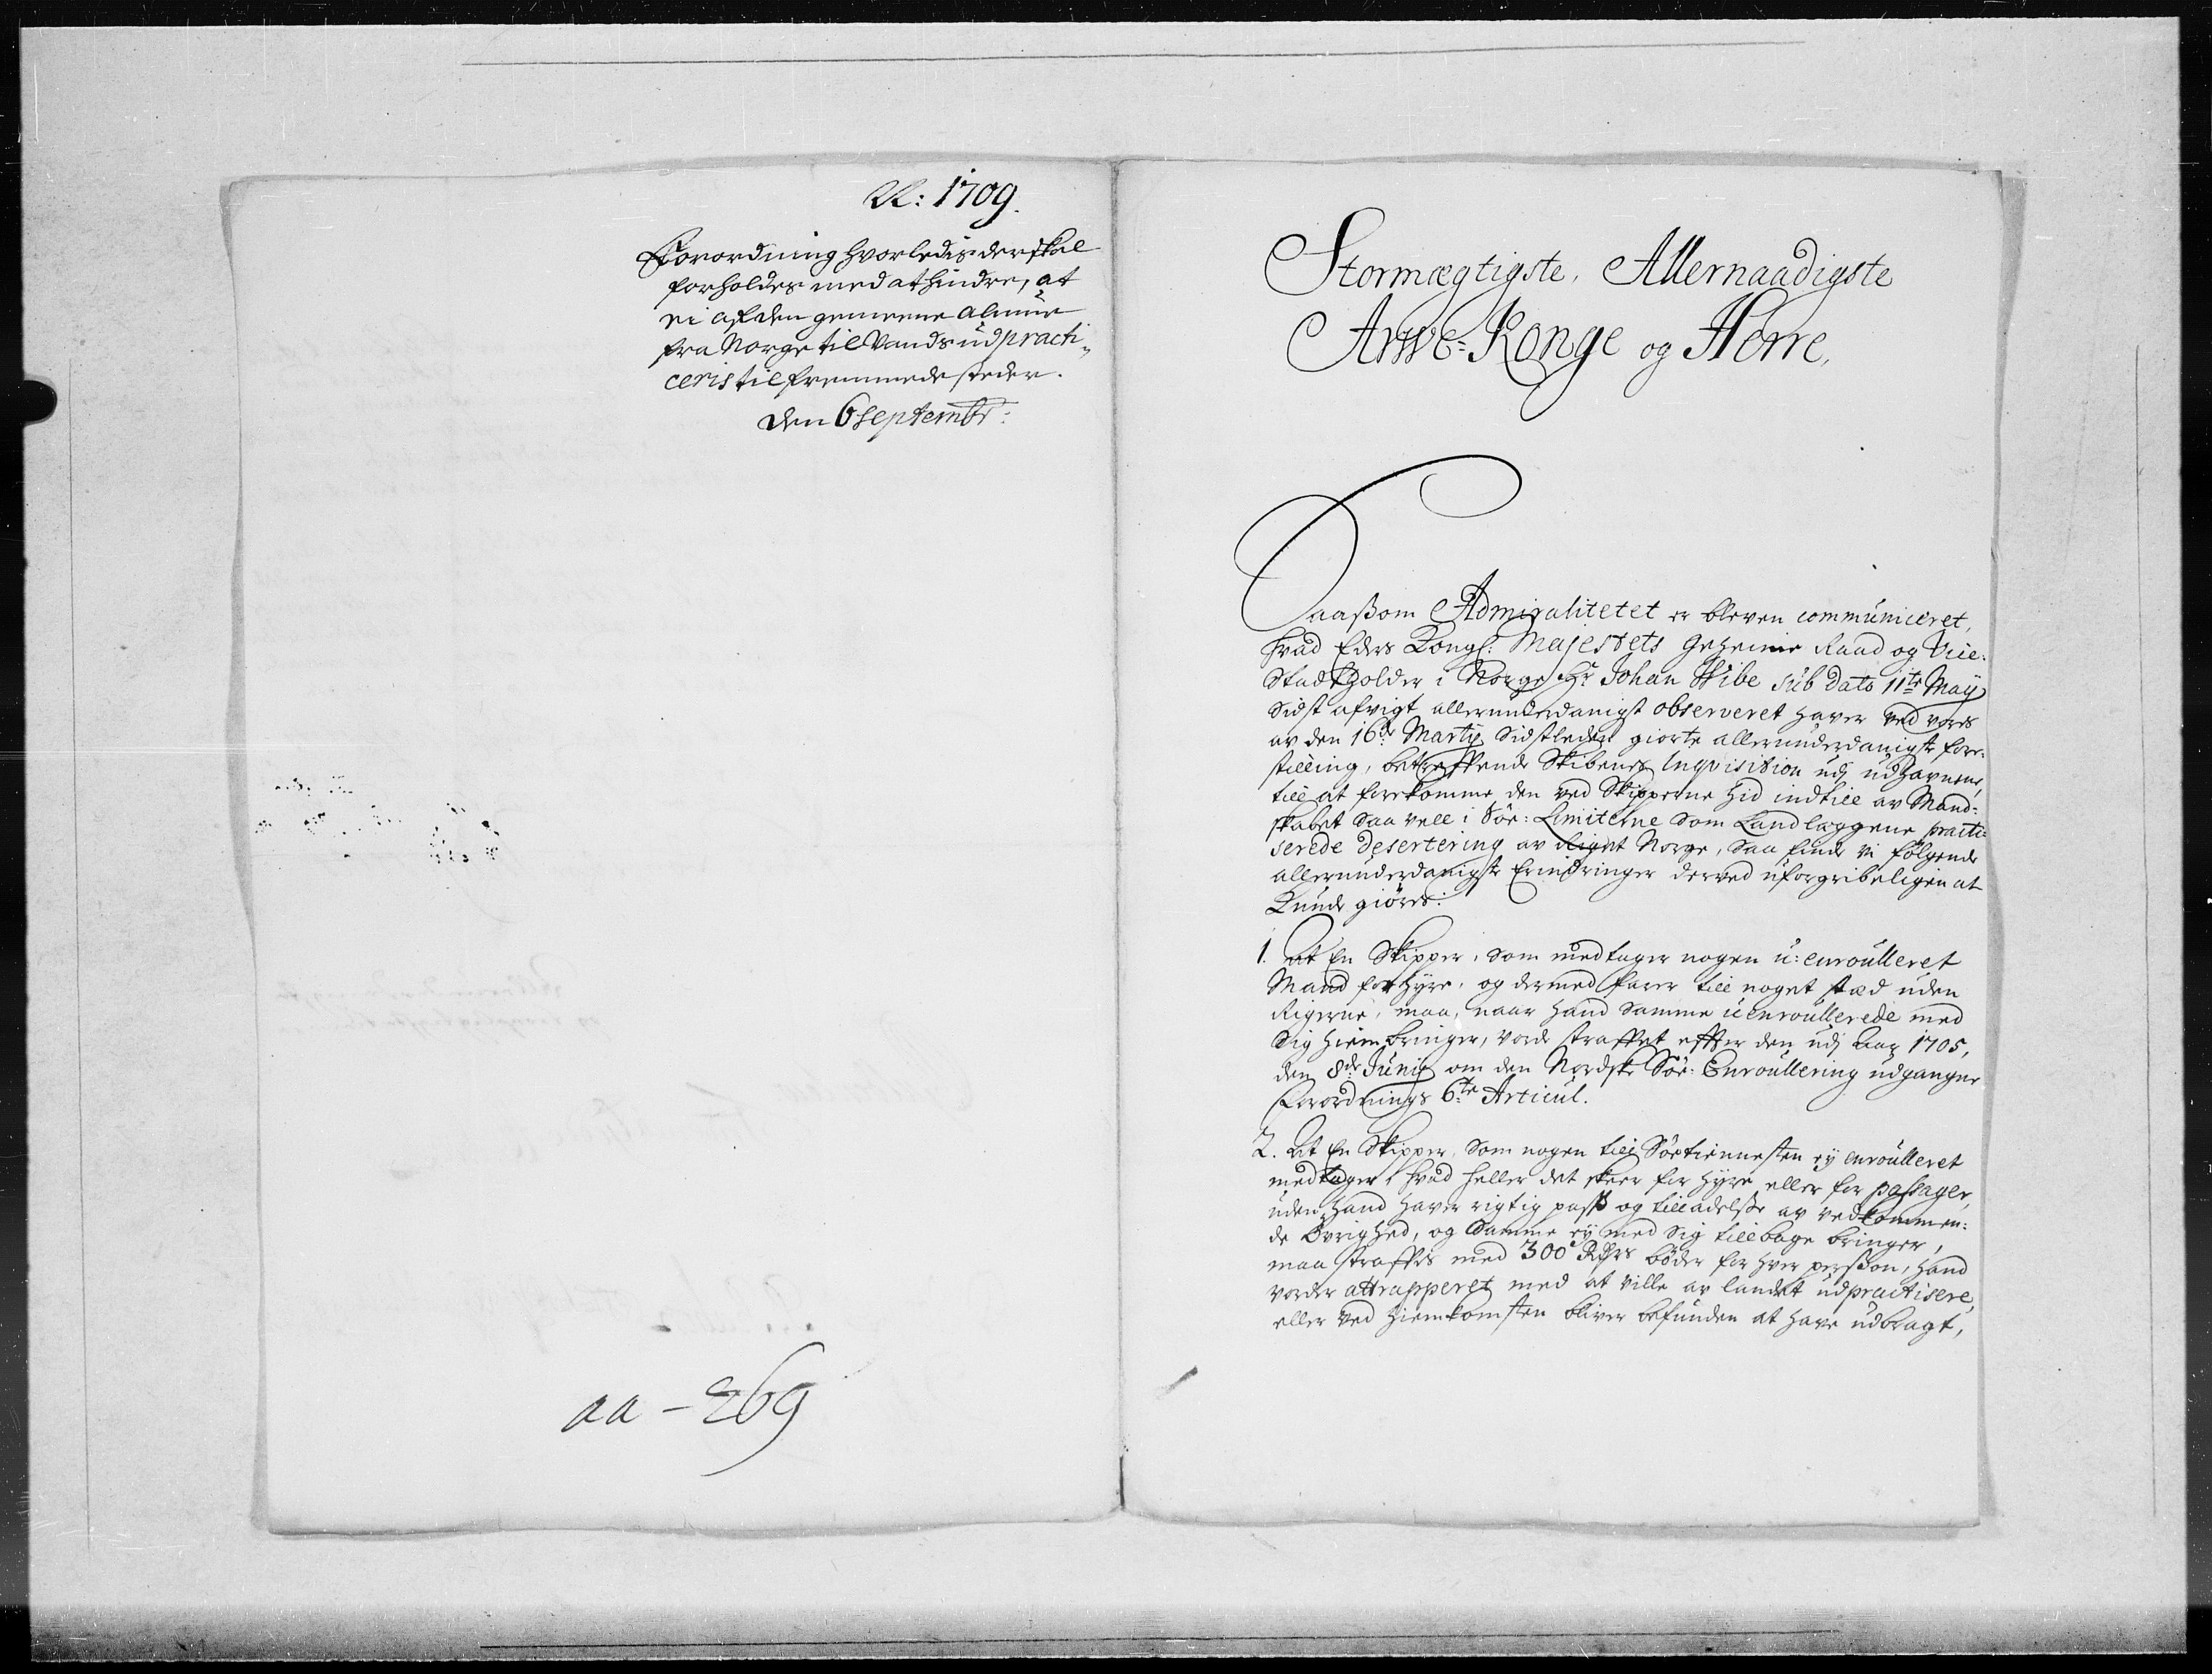 A: 1709.
Forordning hvorledis der skal
forholdes med at hindre, at
ei af den gemeene almue
fra Norge til Vands udpracti„
ceris til fremmede steder.
den 6 Septembr:
aa - 269
Stormægtigste, Allernaadigste
Arwe-Konge og Herre,
Saasom Admiralitetet er bleven communiceret,
hvad Eders Kongl: Majestets Geheime Raad og Vice-
Stadtholder i Norge Hr Johan Wibe sub dato 11te Maij
sidst afvigt allerunderdanigst observeret haver ved vores
av den 16de Martij sidstleden giorte allerunderdanigste fore-
stilling, betreffende Skibenes Inqvisition udj udhavnene,
till at forekomme den ved Skipperne hid indtill av Mand-
skabet saa vell i Söe-Limiterne som Landlæggene practi-
serede desertering av Riget Norge, saa finde vi følgende
allerunderdanigste Erindringer derved uforgribeligen at
kunde giöres:
1. At En Skipper, som medtager nogen u-enroulleret
Mand for hyre, og dermed farer till noget stæd uden
Rigerne, maa, naar hand samme uenroullerede med
sig hiem bringer, vorde straffet effter den udj Aar 1705,
den 8de Junij om den Nordske Söe-Enroullering udgangne
Forordnings 6te Articul.
2. At En Skipper, som nogen till Söetiennesten ej enroulleret
medtager, hvad heller det skeer for hyre eller for passager,
uden hand haver rigtig pass og tilladelsse av vedkommen-
de Övrighed, og samme ej med sig tillbage bringer,
maa straffes med 300 Rdrs böder for hver persson, hand
vorder attrapperet med at ville av landet udpractisere,
eller ved hiemkomsten bliver befunden at have udbragt,